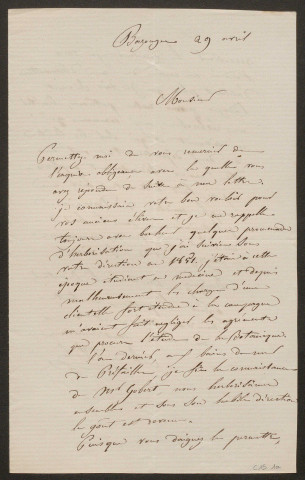 Bazougers 29 avril
Monsieur
Permettez moi de vous remercier de
l'exquise obligeance avec laquelle vous
avez répondu de suite à ma lettre.
je connaissais votre bon vouloir pour
vos anciens élèves et je me rappelle
toujours avec bonheur quelques promenades
d'herborisation que j'ai suivies sous
votre direction en 1851. j'étais à cette
époque étudiant en médecine et depuis
malheureusement les charges d'une
clientelle fort étendue à la campagne
m'avaient fait négliger les agréments
que procure l'étude de la Botanique.
l'an dernier, aux bains de mer
de Préfailles, je fis la connaissance
de Mr Gobert nous herborisâmes
ensembles et sous son habile direction
le goût est revenu.
Puisque vous daignez le permettre,